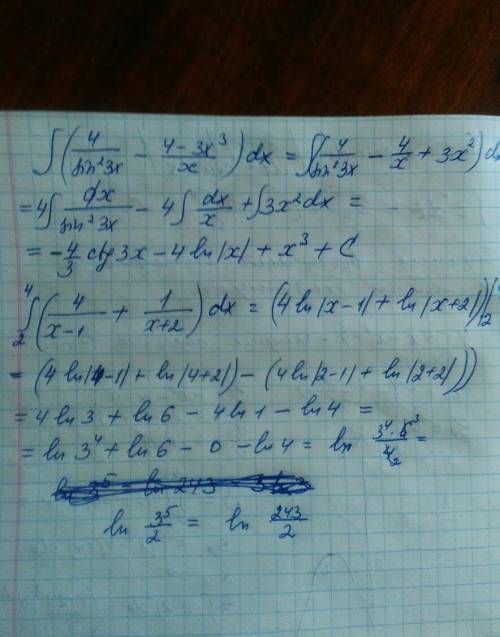 ∫(4/sin²3x − (4−3x³)/x)dx = ∫(4/sin²3x − 4/x + 3x²)d
= 4∫dx/sin²3x − 4∫dx/x + ∫3x²dx =
= −4/3 ctg3x − 4ln|x| + x³ + C
∫₂⁴(4/(x−1) + 1/(x+2))dx = (4ln|x−1| + ln|x+2|)|₂
= (4ln|4−1| + ln|4+2|) − (4ln|2−1| + ln|2+2|))
= 4ln3 + ln6 − 4ln1 − ln4 =
= ln3⁴ + ln6 − 0 − ln4 = ln (3⁴·6³)/4₂ =
ln 3⁵/2 = ln 243/2